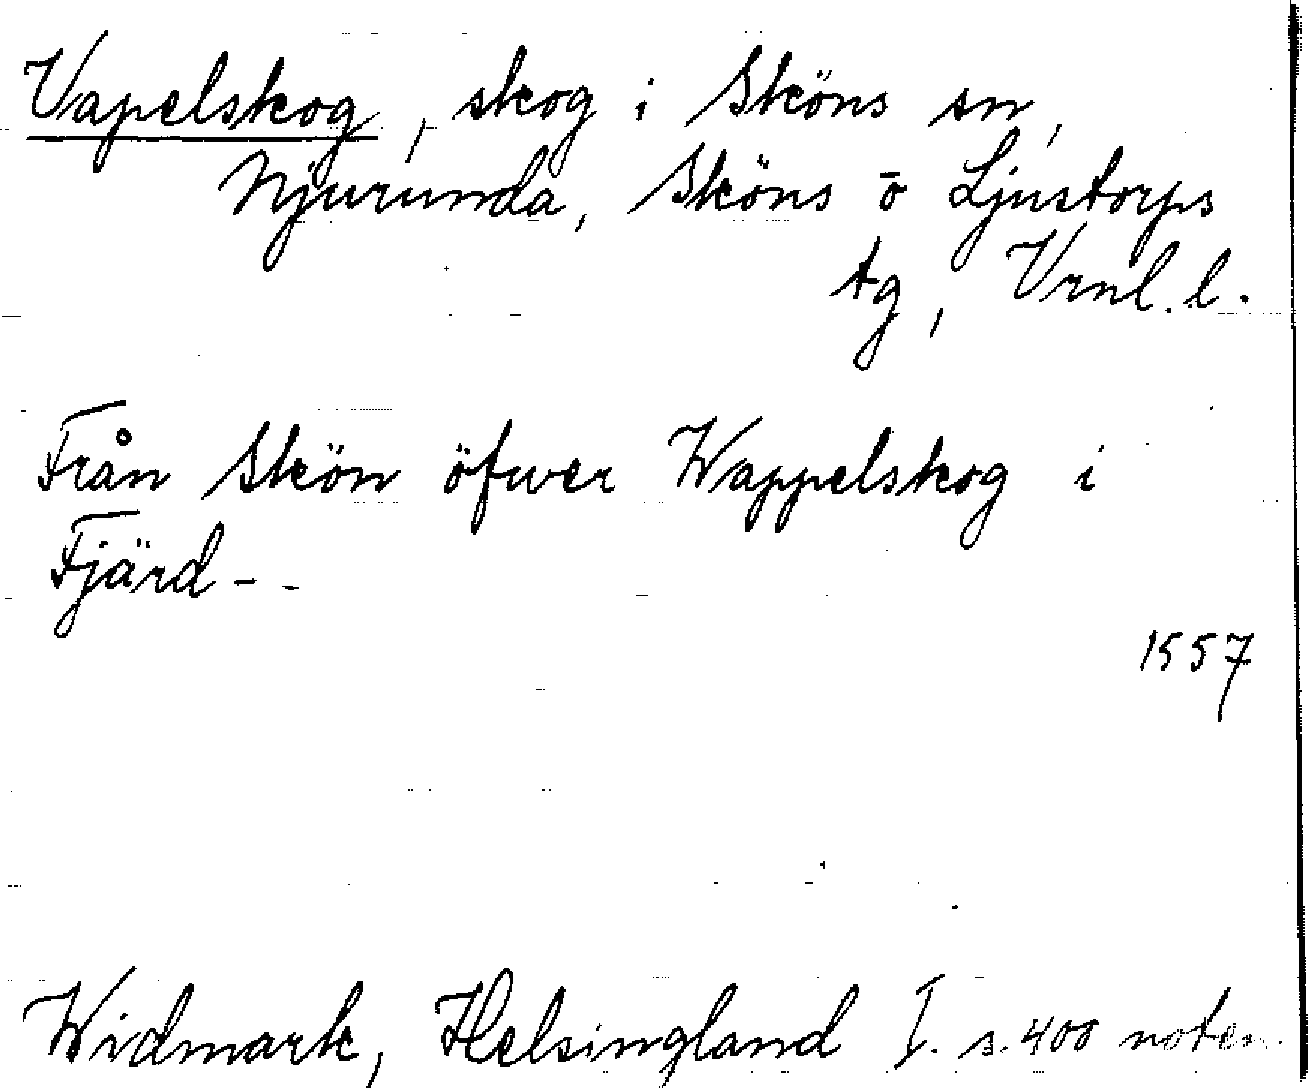 Vapelskog, skog i Sköns sn,
Njurunda, Sköns o Ljustorps
tg, Vrnl. l.
Från Skön öfwer Wappelskog i
Fjärd - -
1557
Widmark, Helsingland I. s. 400 noten.